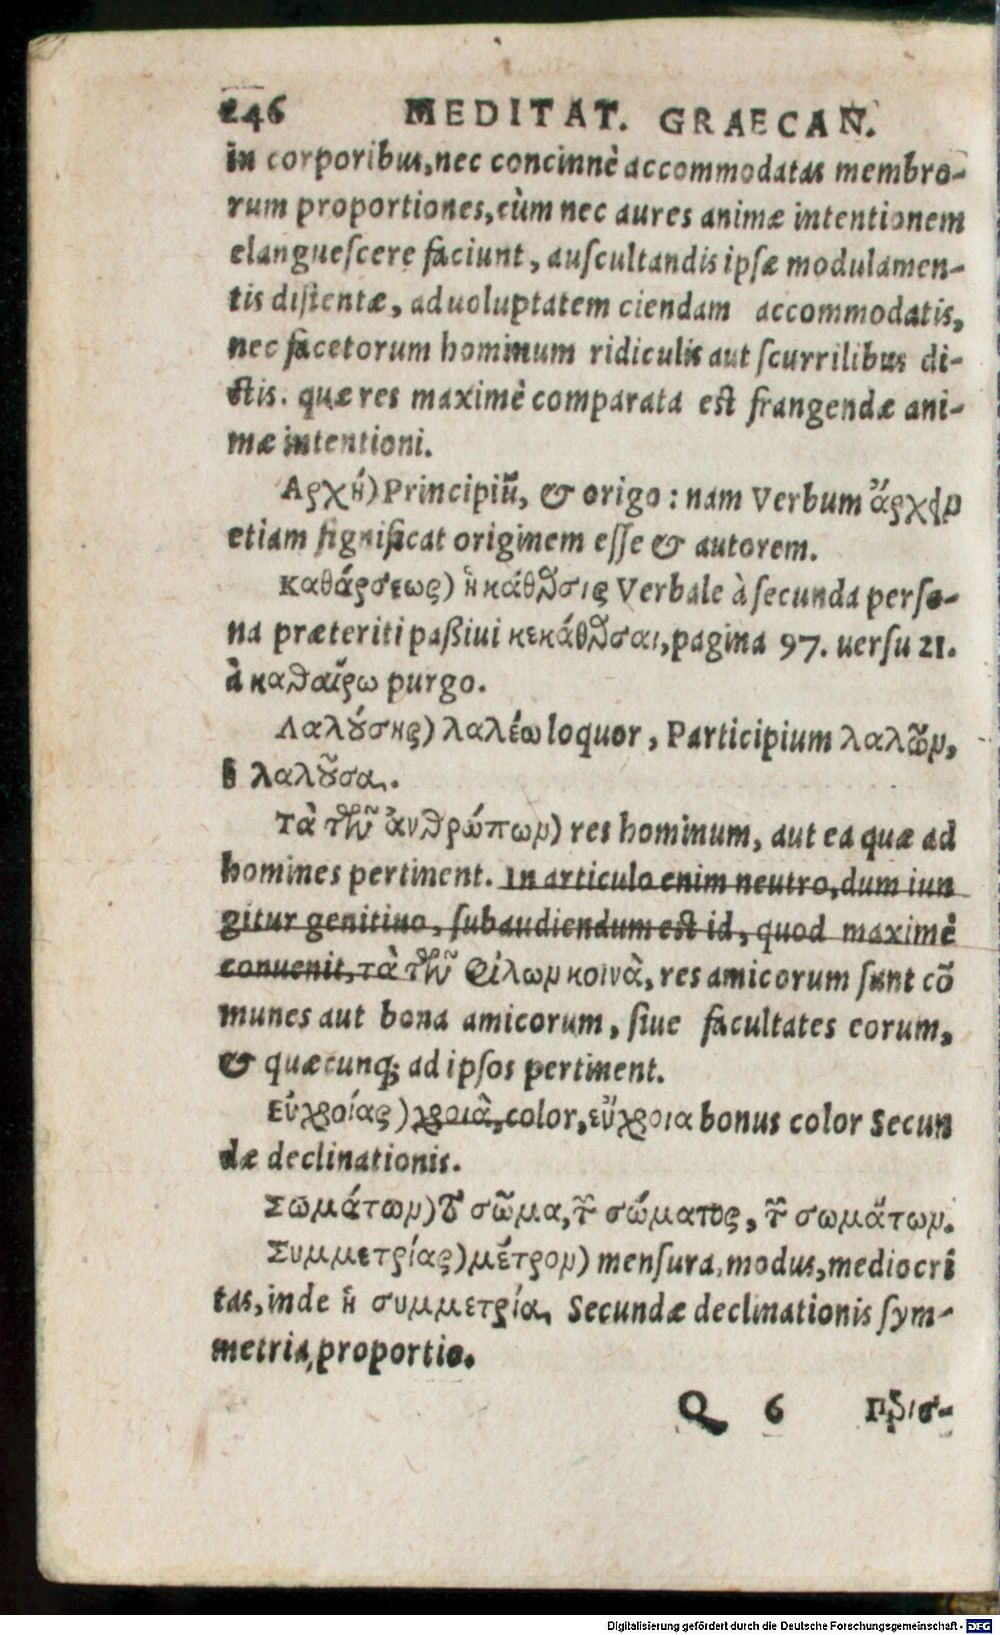 246 MEDITAT. GRAECAN.
in corporibus, nec concinnè accommodatas membro-
rum proportiones, cùm nec aures animæ intentionem
elangueſcere faciunt, auſcultandis ipſæ modulamen-
tis diſtentæ, ad uoluptatem ciendam accommodatis,
nec facetorum hominum ridiculis aut ſcurrilibus di-
ctis. quæ res maximè comparata est frangendæ ani-
mæ intentioni.
Αρχή) Principiũ, & origo: nam Verbum ἄρχειν
etiam ſignificat originem eſſe & autorem.
Καθάρσεως) ἡ κάθαρσις Verbale à ſecunda perſo-
na præteriti paßiui κεκάθαρσαι, pagina 97. uerſu 21.
à καθαίρω purgo.
Λαλούσης) λαλέω loquor, Participium λαλῶν,
ἡ λαλοῦσα.
Τὰ τῶν ἀνθρώπων) res hominum, aut ea quæ ad
homines pertinent. In articulo enim neutro, dum iun
gitur genitiuo, ſubaudiendum est id, quod maximè
conuenit, τὰ τῶν φίλων κοινὰ, res amicorum ſunt cõ
munes aut bona amicorum, ſiue facultates eorum,
& quæcunq; ad ipſos pertinent.
Εὐχροίας) χροιὰ, color, εὔχροια bonus color Secun
dæ declinationis.
Σωμάτων) τὸ σῶμα, τοῦ σώματος, τῶν σωμάτων.
Συμμετρίας) μέτρον) menſura, modus, mediocri
tas, inde ἡ συμμετρία, Secundæ declinationis ſym-
metria, proportio.
Q 6 Πρισ-
Digitalisierung gefördert durch die Deutsche Forschungsgemeinschaft - DFG